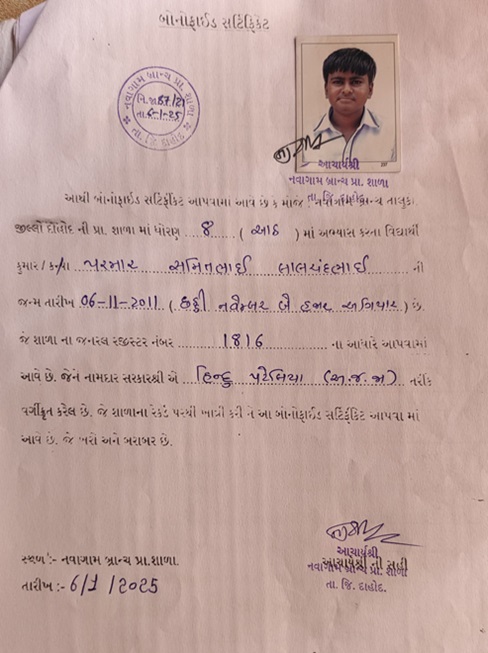 બોનોફાઈડ સર્ટિફિકેટ
નવાગામ બ્રાન્ચ પ્રા. શાળા
તા. જિ. દાહોદ
તા. 6-1-25
આચાર્યશ્રી
નવાગામ બ્રાન્ચ પ્રા. શાળા
આથી બોનોફાઈડ સર્ટિફીકેટ આપવામાં આવે છે કે મોજે નવાગામ બ્રાન્ચ તાલુકા
જીલ્લો દાહોદ ની પ્રા. શાળા માં ધોરણ 8 ( આઠ ) માં અભ્યાસ કરના વિદ્યાર્થી
કુમાર / કન્યા પરમાર લાલચંદભાઈ ની
જન્મ તારીખ 06-11-2011 ( છઠ્ઠી નવેમ્બર બે હજાર અગિયાર ) છે.
જે શાળા ના જનરલ રજીસ્ટર નંબર 1816 ના આધારે આપવામાં
આવે છે. જેને નામદાર સરકારશ્રી એ હિન્દુ પટેલિયા (અ.જ.જા) તરીકે
વર્ગીકૃત કરેલ છે. જે શાળાના રેકર્ડ પરથી ખાત્રી કરી ને આ બોનોફાઈડ સર્ટિફીકેટ આપવા માં
આવે છે. જે ખરો અને બરાબર છે.
આચાર્યશ્રી
આચાર્યશ્રી ની સહી
સ્થળ :- નવાગામ બ્રાન્ચ પ્રા.શાળા.
નવાગામ બ્રાન્ચ પ્રા. શાળા
તા. જિ. દાહોદ.
તારીખ :- 6/1/2025